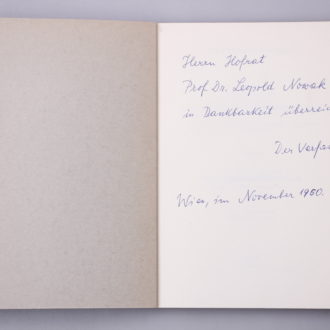 Herrn Hofrat
Prof. Dr. Leopold Nowak
in Dankbarkeit überrei
Der Verfas
Wien, im November 1960.